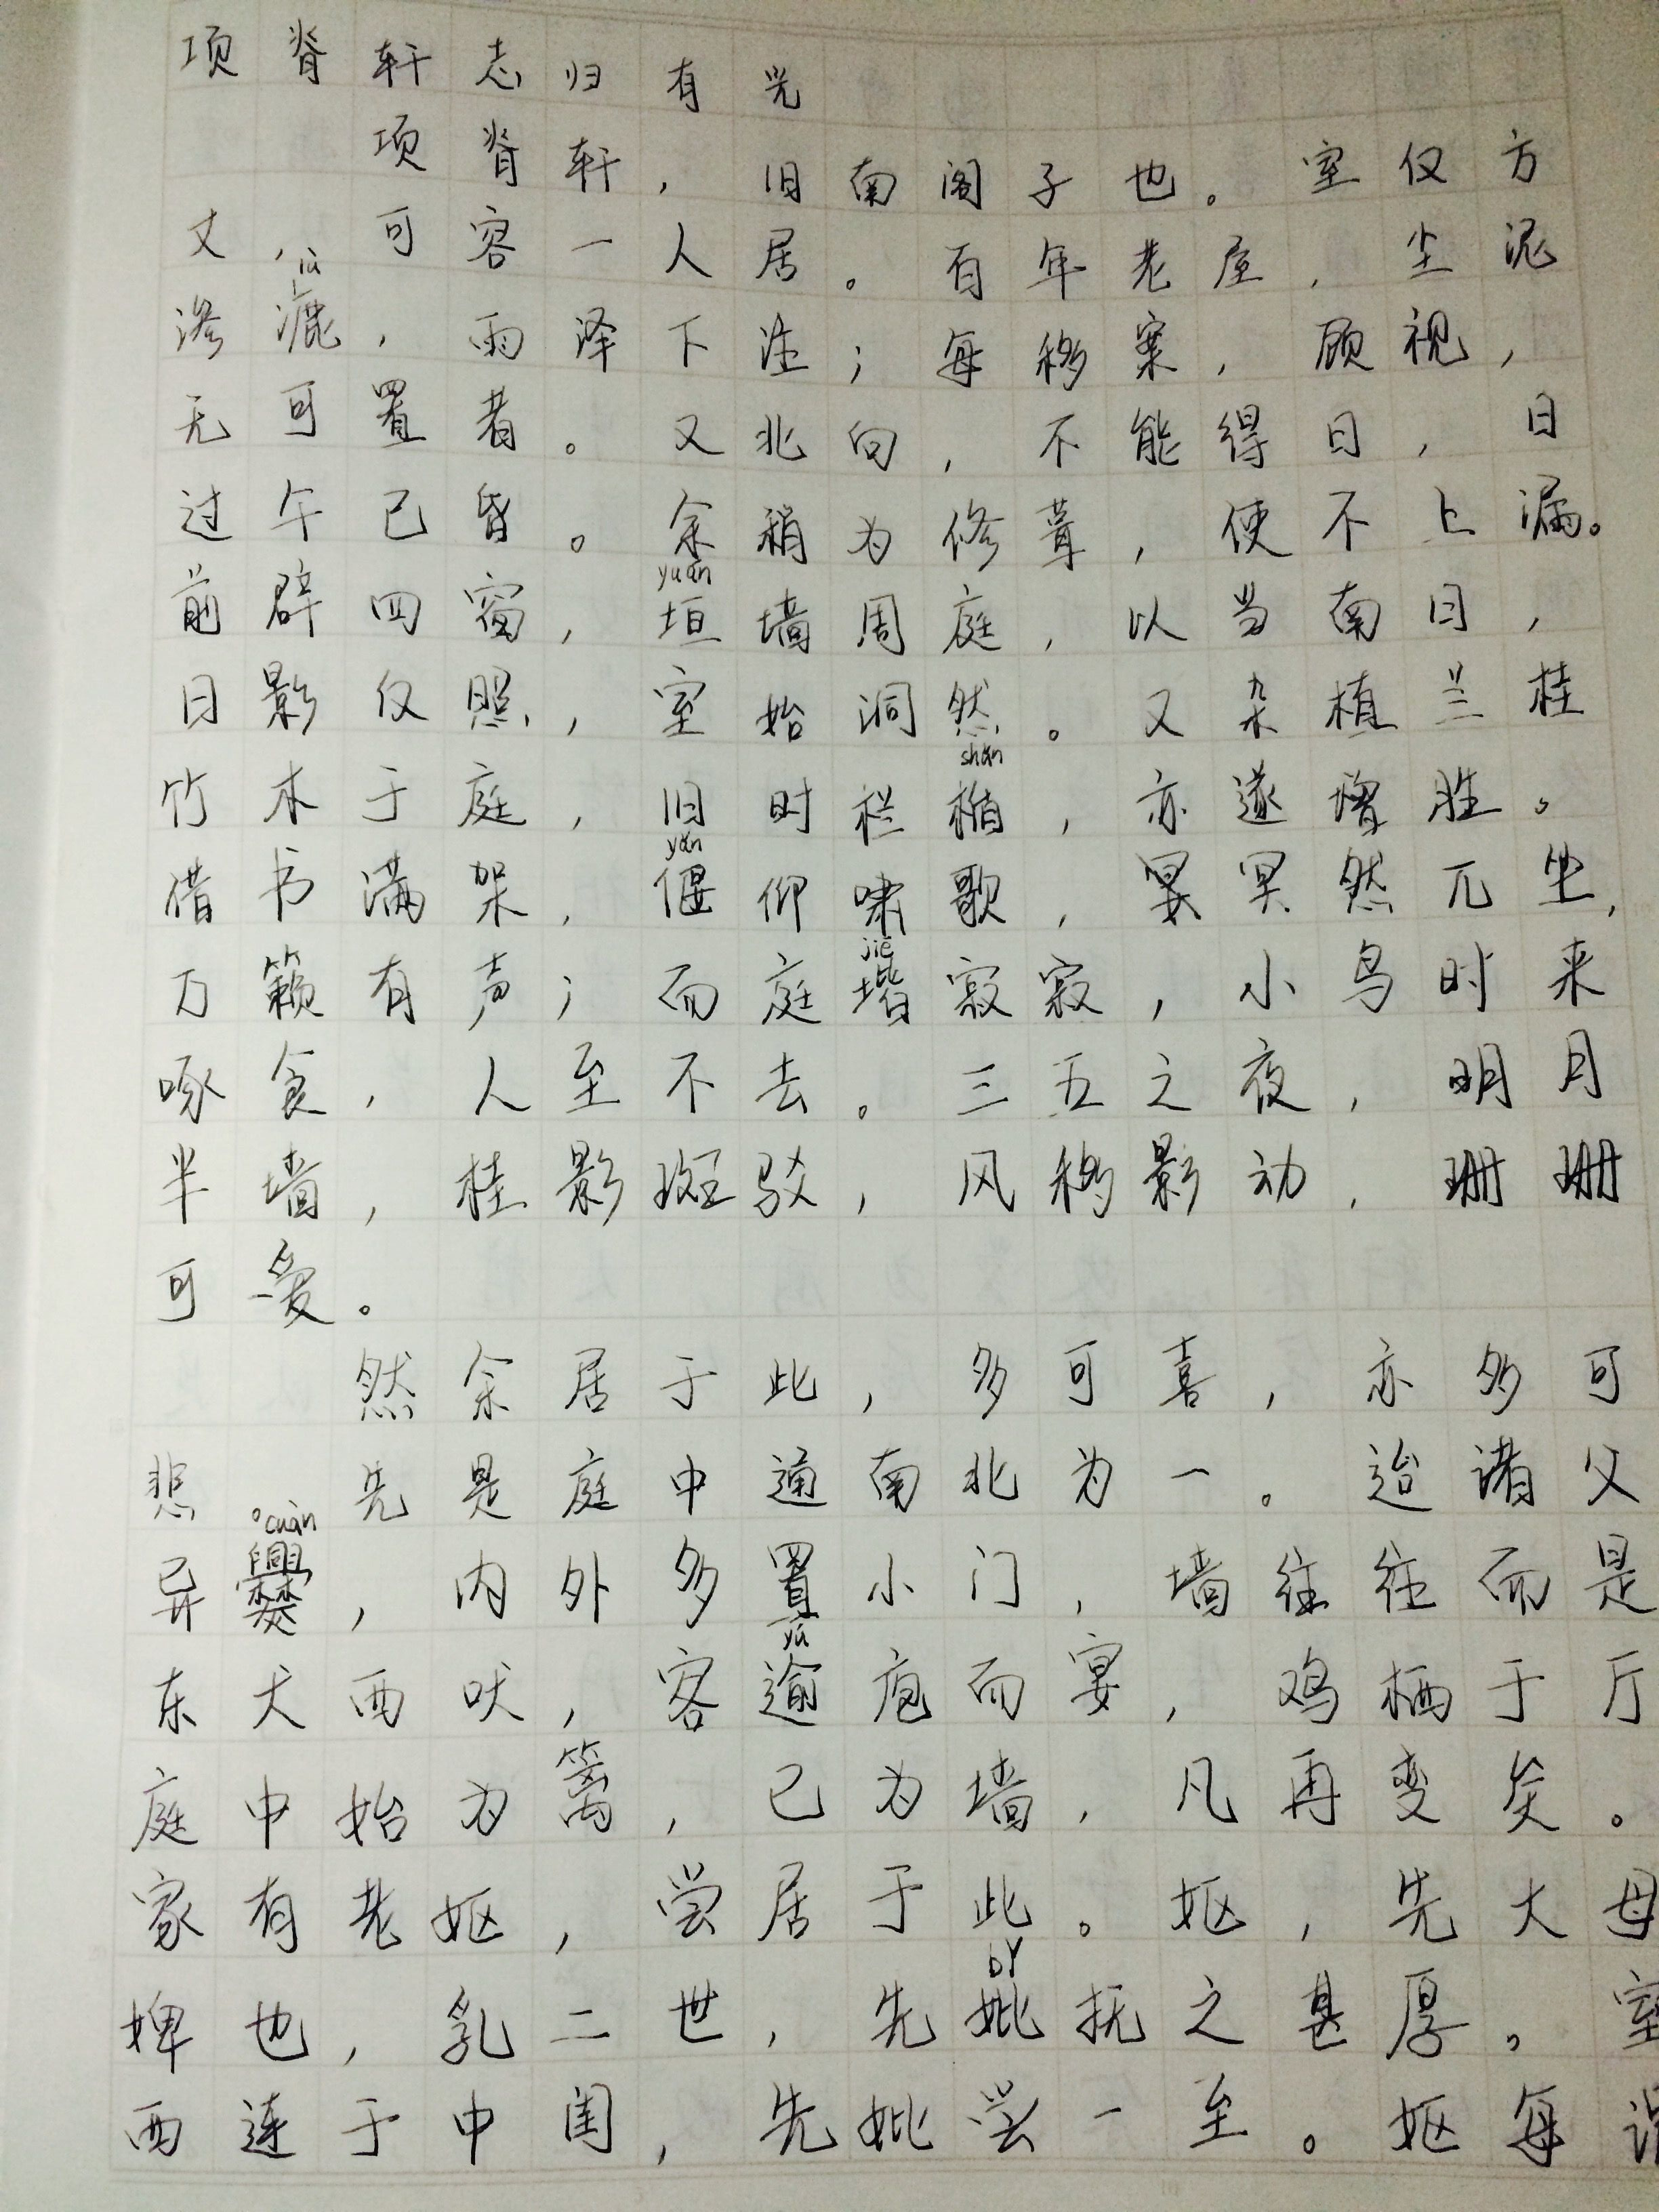 项脊轩志归有光
项脊轩，旧南阁子也。室仅方
丈，可容一人居。百年老屋，尘泥
lù
渗漉，雨泽下注；每移案，顾视，
无可置者。又北向，不能得日，日
过午已昏。余稍为修葺，使不上漏。
yuán
前辟四窗，垣墙周庭，以当南日，
日影仅照，室始洞然。又杂植兰桂
shǔn
竹木于庭，旧时栏楯，亦遂增胜。
yǎn
借书满架，偃仰啸歌，冥冥然兀坐，
jiē
万籁有声；而庭堦寂寂，小鸟时来
啄食，人至不去。三五之夜，明月
半墙，桂影斑驳，风移影动，珊珊
可爱。
然余居于此，多可喜，亦多可
悲。先是庭中通南北为一。迨诸父
cuàn
异爨，内外多置小门，墙往往而是
yú
东犬西吠，客逾庖而宴，鸡栖于厅
庭中始为篱，已为墙，凡再变矣。
家有老妪，尝居于此。妪，先大母
bǐ
婢也，乳二世，先妣抚之甚厚。室
西连于中闺，先妣尝一至。妪每